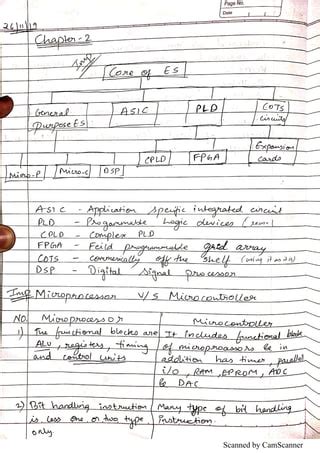 Page No.
Date
26/11/19
Chapter-2
Imp
Core of ES
General purpose ES
ASIC
PLD
COTS circuits
Micro-P
Micro-C
DSP
CPLD
FPGA
Expansion cards
ASIC - Application specific integrated circuit
PLD - Programmable Logic devices
CPLD - Complex PLD
FPGA - Feild programmable grid array
COTS - commercially off the shelf (using it as it is)
DSP - Digital signal processor
Imp Microprocessor v/s Microcontroller
NO. Microprocessor Microcontroller
1) The functional blocks are It includes functional blocks
ALU, registers, timing of microprocessors & in
and control units addition has timer, parallel
i/o, RAM, EPROM, ADC
& DAC
2) Bit handling instruction Many type of bit handling
is less one or two type instruction.
only.
Scanned by CamScanner